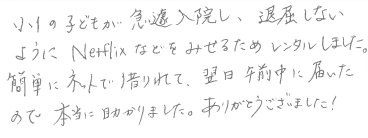 小1の子どもが急遽入院し、退屈しない
ようにNetflixなどをみせるためレンタルしました。
簡単にネットで借りれて、翌日午前中に届いた
ので本当に助かりました。ありがとうございました!